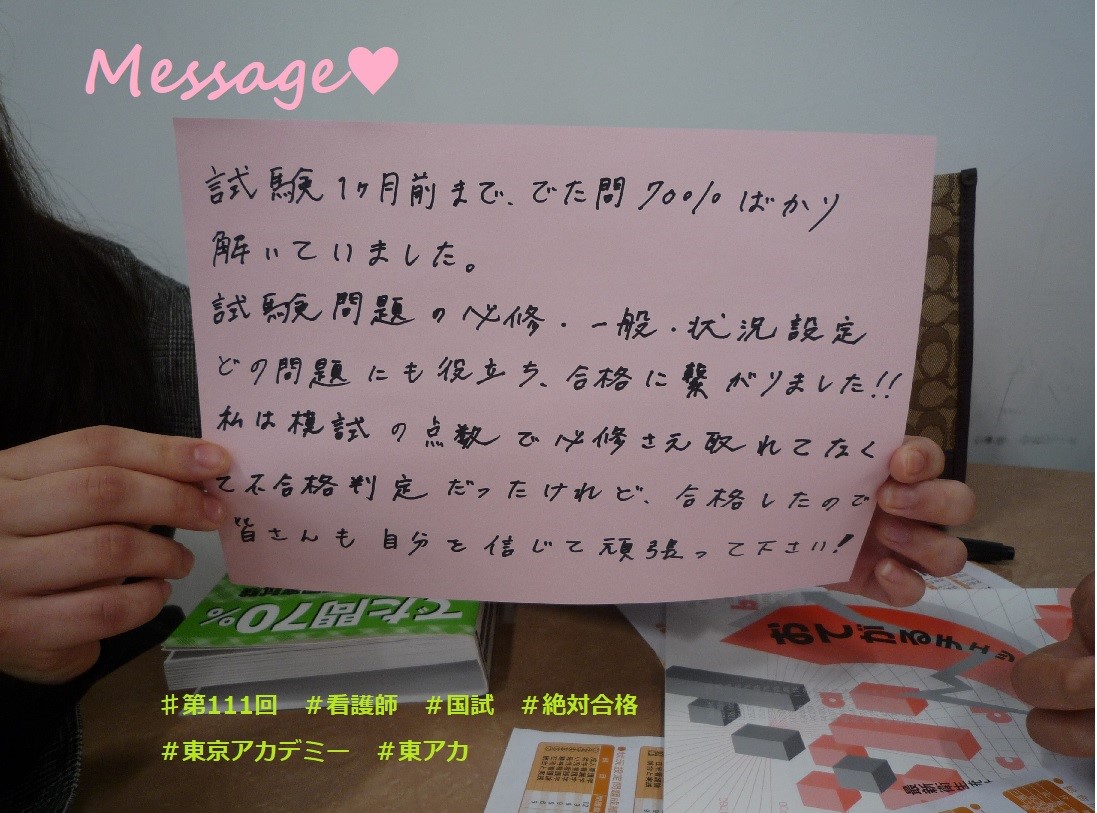 Message♥
試験1ヶ月前まで、でた問70%ばかり
解いていました。
試験問題の必修・一般・状況設定
どの問題にも役立ち、合格に繋がりました!!
私は模試の点数で必修さえ取れてなく
て不合格判定だったけれど、合格したので
皆さんも自分を信じて頑張って下さい!
でた問70%
おてがるチェッ
#第111回 #看護師 #国試 #絶対合格
#東京アカデミー #東アカ